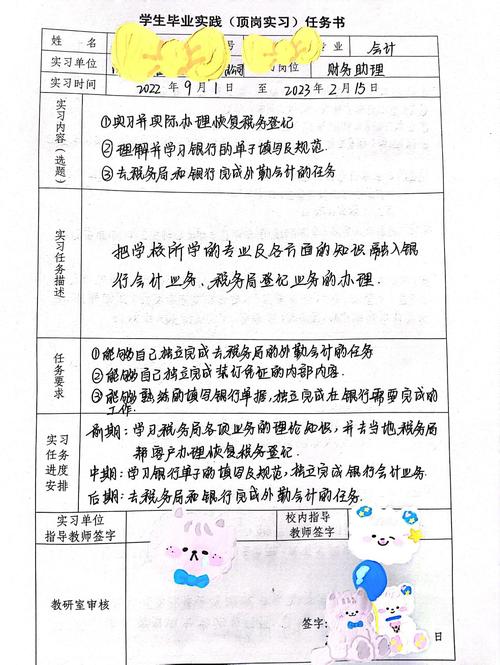 学生毕业实践（顶岗实习）任务书
姓 名 号 专业 会计
实习单位 公司 实习岗位 财务助理
实习时间 2022年9月1日 至 2023年2月15日
实习内容（选题）
①实习并实际办理恢复税务登记
②理解并学习银行的单子填写及规范.
③去税务局和银行完成外勤会计的任务
实习任务描述
把学校所学的专业及各方面的知识融入银
行会计业务、税务局登记业务的办理.
任务要求
①能够自己独立完成去税务局的外勤会计的任务
②能够自己独立完成装订凭证的内部内容.
③能够熟练的填写银行单据,独立完成在银行需要完成的
工作.
实习任务进度安排
前期:学习税务局各项业务的理论知识,并去当地税务局
帮客户办理恢复税务登记.
中期:学习银行单子的填写及规范,独立完成银行会计业务.
后期:去税务局和银行完成外勤会计的任务.
实习单位指导教师签字
校内指导教师签字
教研室审核
签字:
日